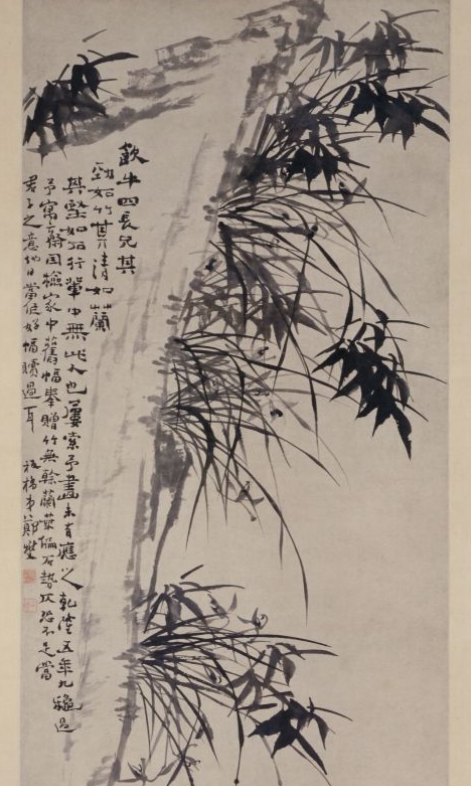 牛四長兄其
勁如竹其清如蘭
其堅如石行輩中無此人也屢索予畫未有應之乾隆五年九穐過
予寓齋因檢家中舊幅奉贈竹無幹蘭葉偏石勢仄恐不足當
君子之意他日當作好幅贖過耳 板橋弟鄭燮